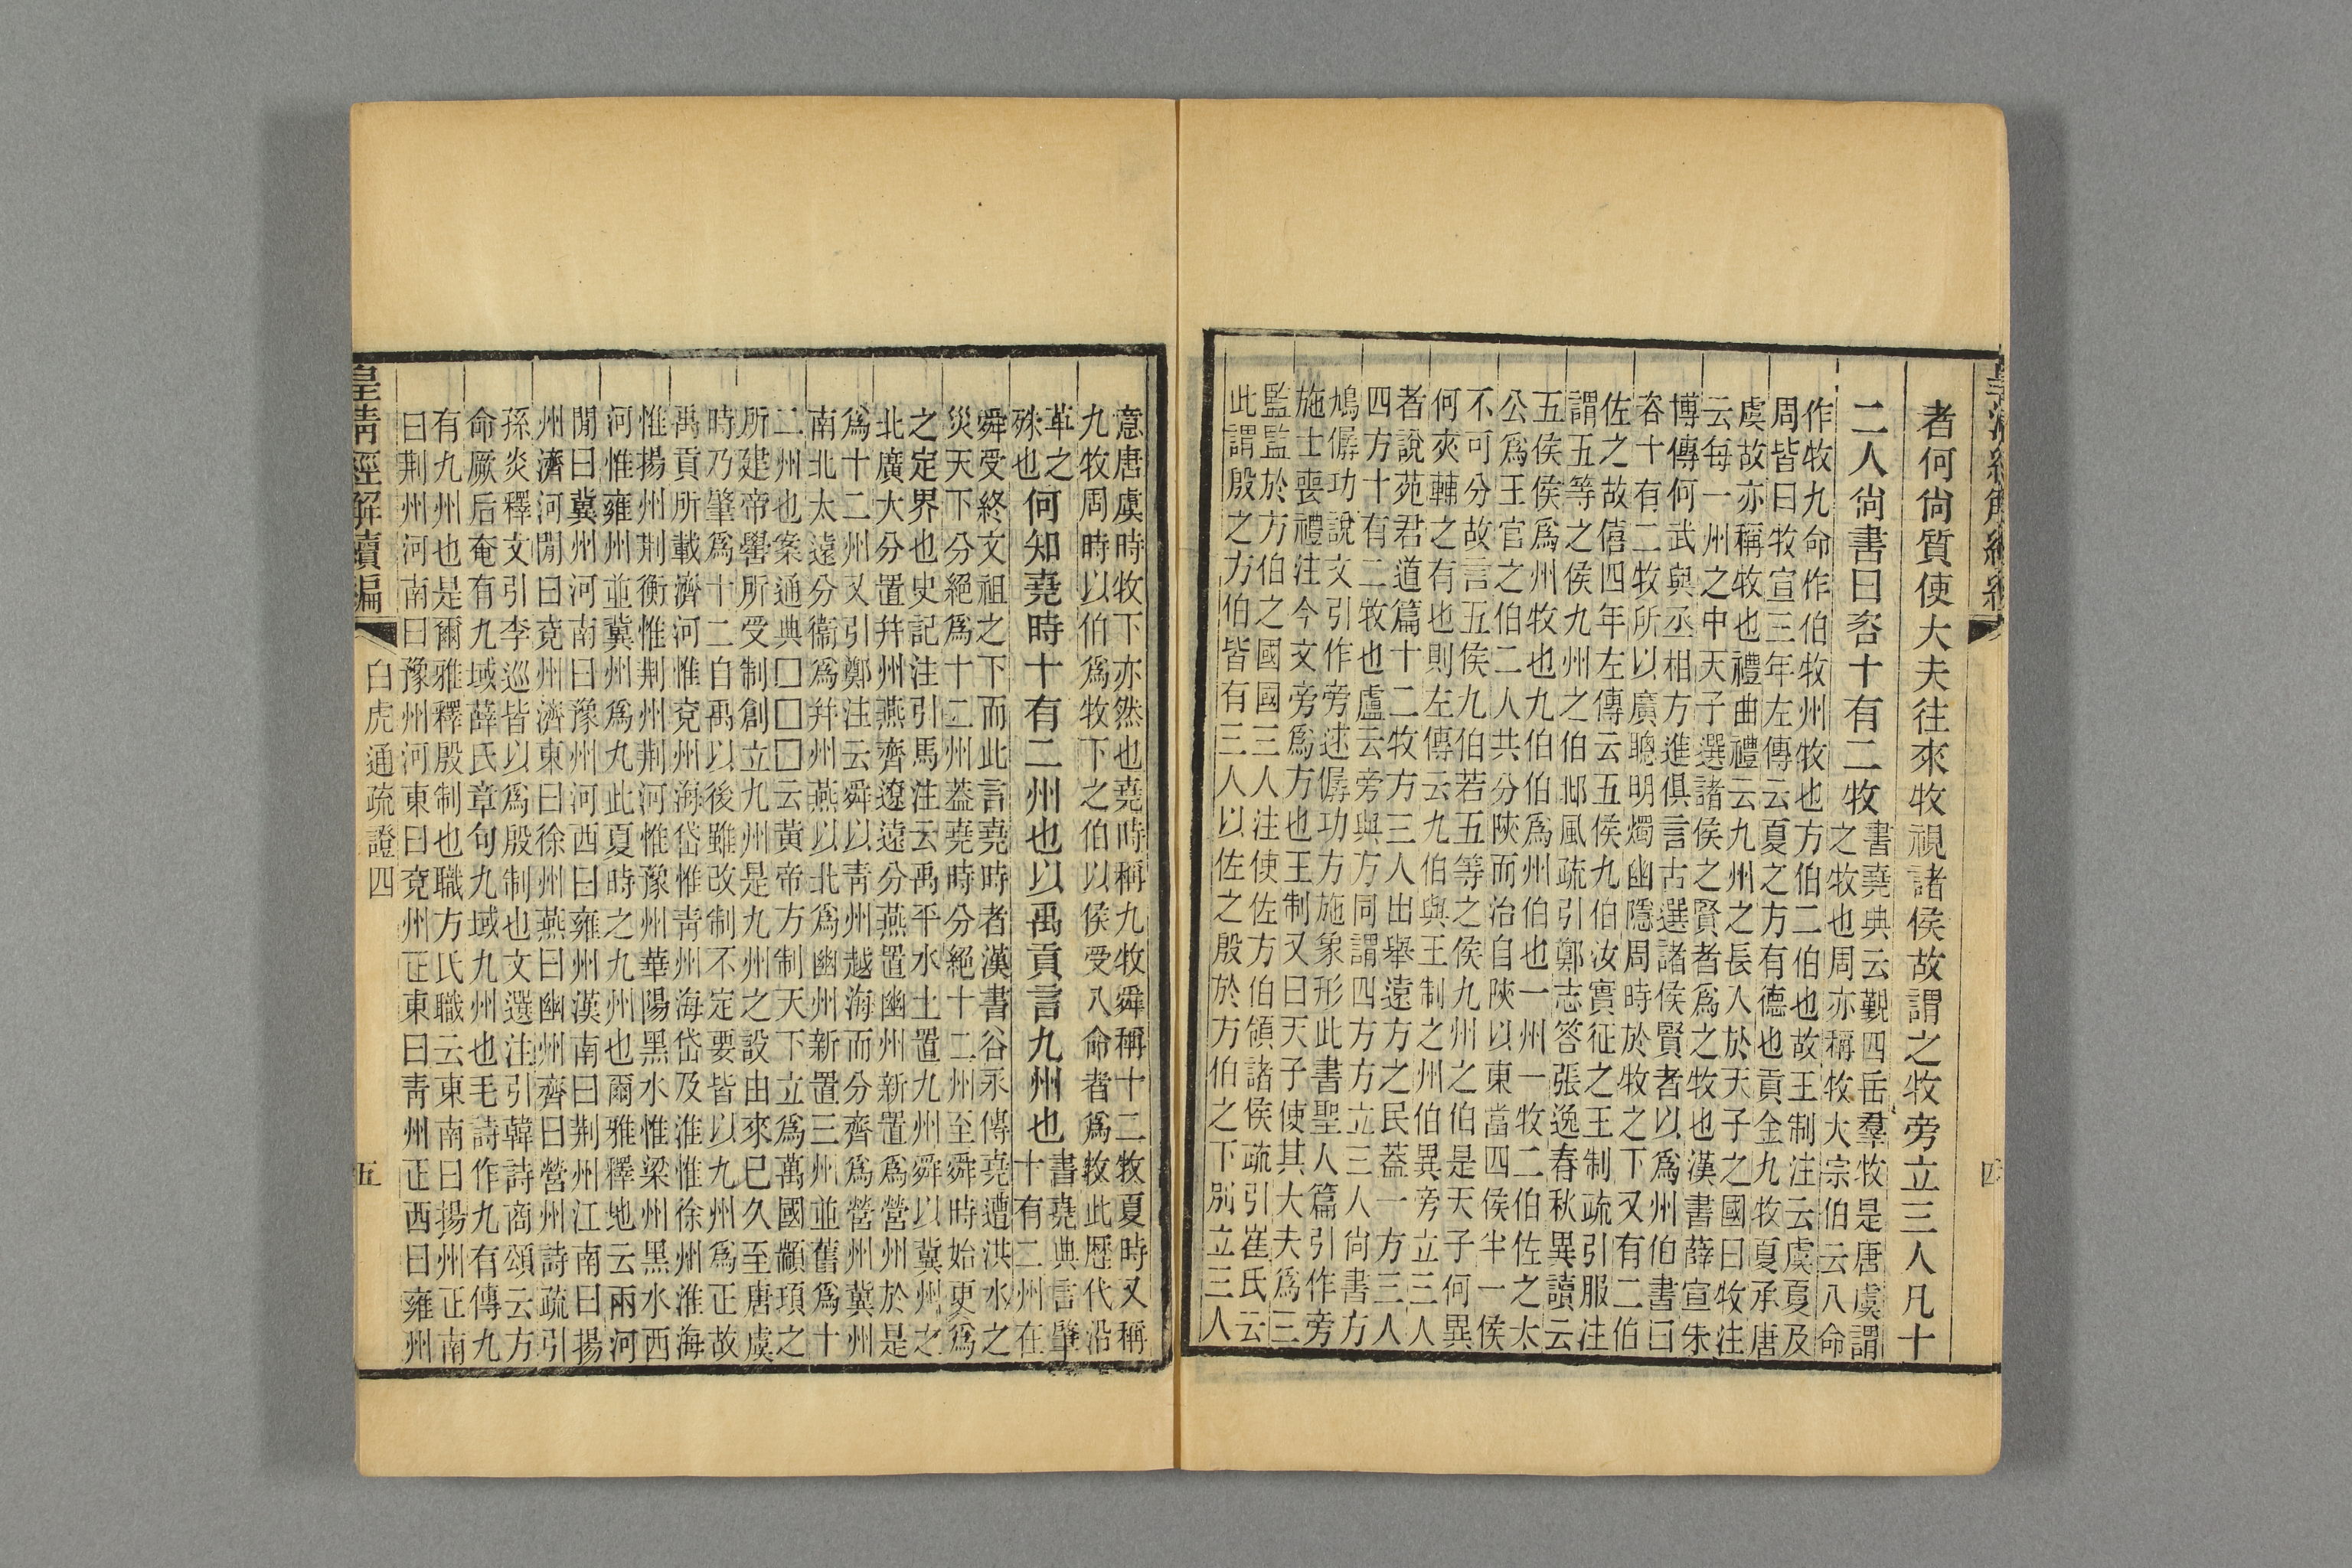 者何尙質使大夫往來牧視諸侯故謂之牧旁立三人凡十
二人尙書曰咨十有二牧
書堯典云覲四岳羣牧是唐虞謂
之牧也周亦稱牧大宗伯云八命
作牧九命作伯牧州牧也方伯二伯也故王制注云虞夏及
周皆曰牧宣三年左傳云夏之方有德也貢金九牧夏承唐
虞故亦稱牧也禮曲禮云九州之長人於天子之國曰牧注
云每一州之中天子選諸侯之賢者爲之牧也漢書薛宣朱
博傳何武與丞相方進俱言古選諸侯賢者以爲州伯書曰
咨十有二牧所以廣聰明燭幽隱周時於牧之下又有二伯
佐之故僖四年左傳云五侯九伯汝實征之王制疏引服注
謂五等之侯九州之伯邶風疏引鄭志答張逸春秋異讀云
五侯侯爲州牧也九伯伯爲州伯也一州一牧二伯佐之太
公爲王官之伯二人共分陝而治自陝以東當四侯半一侯
不可分故言五侯九伯若五等之侯九州之伯是天子何異
何夾輔之有也則左傳云九伯與王制之州伯異旁立三人
者說苑君道篇十二牧方三人出舉遠方之民葢一方三人
四方十有二牧也盧云旁與方同謂四方方立三人尙書方
鳩僝功說文引作旁逑僝功方施象形此書聖人篇引作旁
施士喪禮注今文旁爲方也王制又曰天子使其大夫爲三
監監於方伯之國國三人注使佐方伯領諸侯疏引崔氏云
此謂殷之方伯皆有三人以佐之殷於方伯之下別立三人
意唐虞時牧下亦然也堯時稱九牧舜稱十二牧夏時又稱
九牧周時以伯爲牧下之伯以侯受八命者爲牧此歷代沿
革之
殊也
何知堯時十有二州也以禹貢言九州也
書堯典言肇
十有二州在
舜受終文祖之下而此言堯時者漢書谷永傳堯遭洪水之
災天下分絕爲十二州葢堯時分絕十二州至舜時始更爲
之定界也史記注引馬注云禹平水土置九州舜以冀州之
北廣大分置幷州燕齊遼遠分燕置幽州新置爲營州於是
爲十二州又引鄭注云舜以靑州越海而分齊爲營州冀州
南北太遠分衞爲幷州燕以北爲幽州新置三州並舊爲十
二州也案通典□□□云黃帝方制天下立爲萬國顓頊之
所建帝嚳所受制創立九州是九州之設由來已久至唐虞
時乃肇爲十二自禹以後雖改制不定要皆以九州爲正故
禹貢所載濟河惟兗州海岱惟靑州海岱及淮惟徐州淮海
惟揚州荆衡惟荆州荆河惟豫州華陽黑水惟梁州黑水西
河惟雍州並冀州爲九此夏時之九州也爾雅釋地云兩河
閒曰冀州河南曰豫州河西曰雍州漢南曰荆州江南曰揚
州濟河閒曰兗州濟東曰徐州燕曰幽州齊曰營州詩疏引
孫炎釋文引李巡皆以爲殷制也文選注引韓詩商頌云方
命厥后奄有九域薛氏章句九域九州也毛詩作九有傳九
有九州也是爾雅釋殷制也職方氏職云東南曰揚州正南
曰荆州河南曰豫州河東曰兗州正東曰靑州正西曰雍州
皇淸經解續編
白虎通疏證四
五